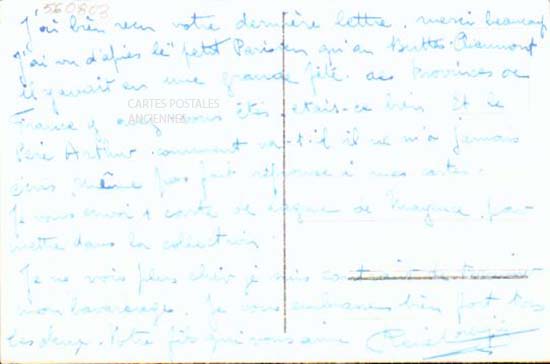 560803
J'ai bien reçu votre dernière lettre. merci beaucoup
j'ai vu d'après le "petit Parisien qu'au Buttes-Chaumont
il y avait eu une grande fête des Provinces de
France y avez vous êtes. etais-ce bien Et le
CARTES POSTALES
ANCIENNES
Père Arthur comment va-t-il il ne m'a jamais
écris même pas fait réponse à mes cartes.
Je vous envoi 1 carte de de pour
mettre dans la collection.
Je ne vois plus cher je suis
mon bavardage. Je vous embrasse bien fort tous
les deux. Votre fils qui vous aime